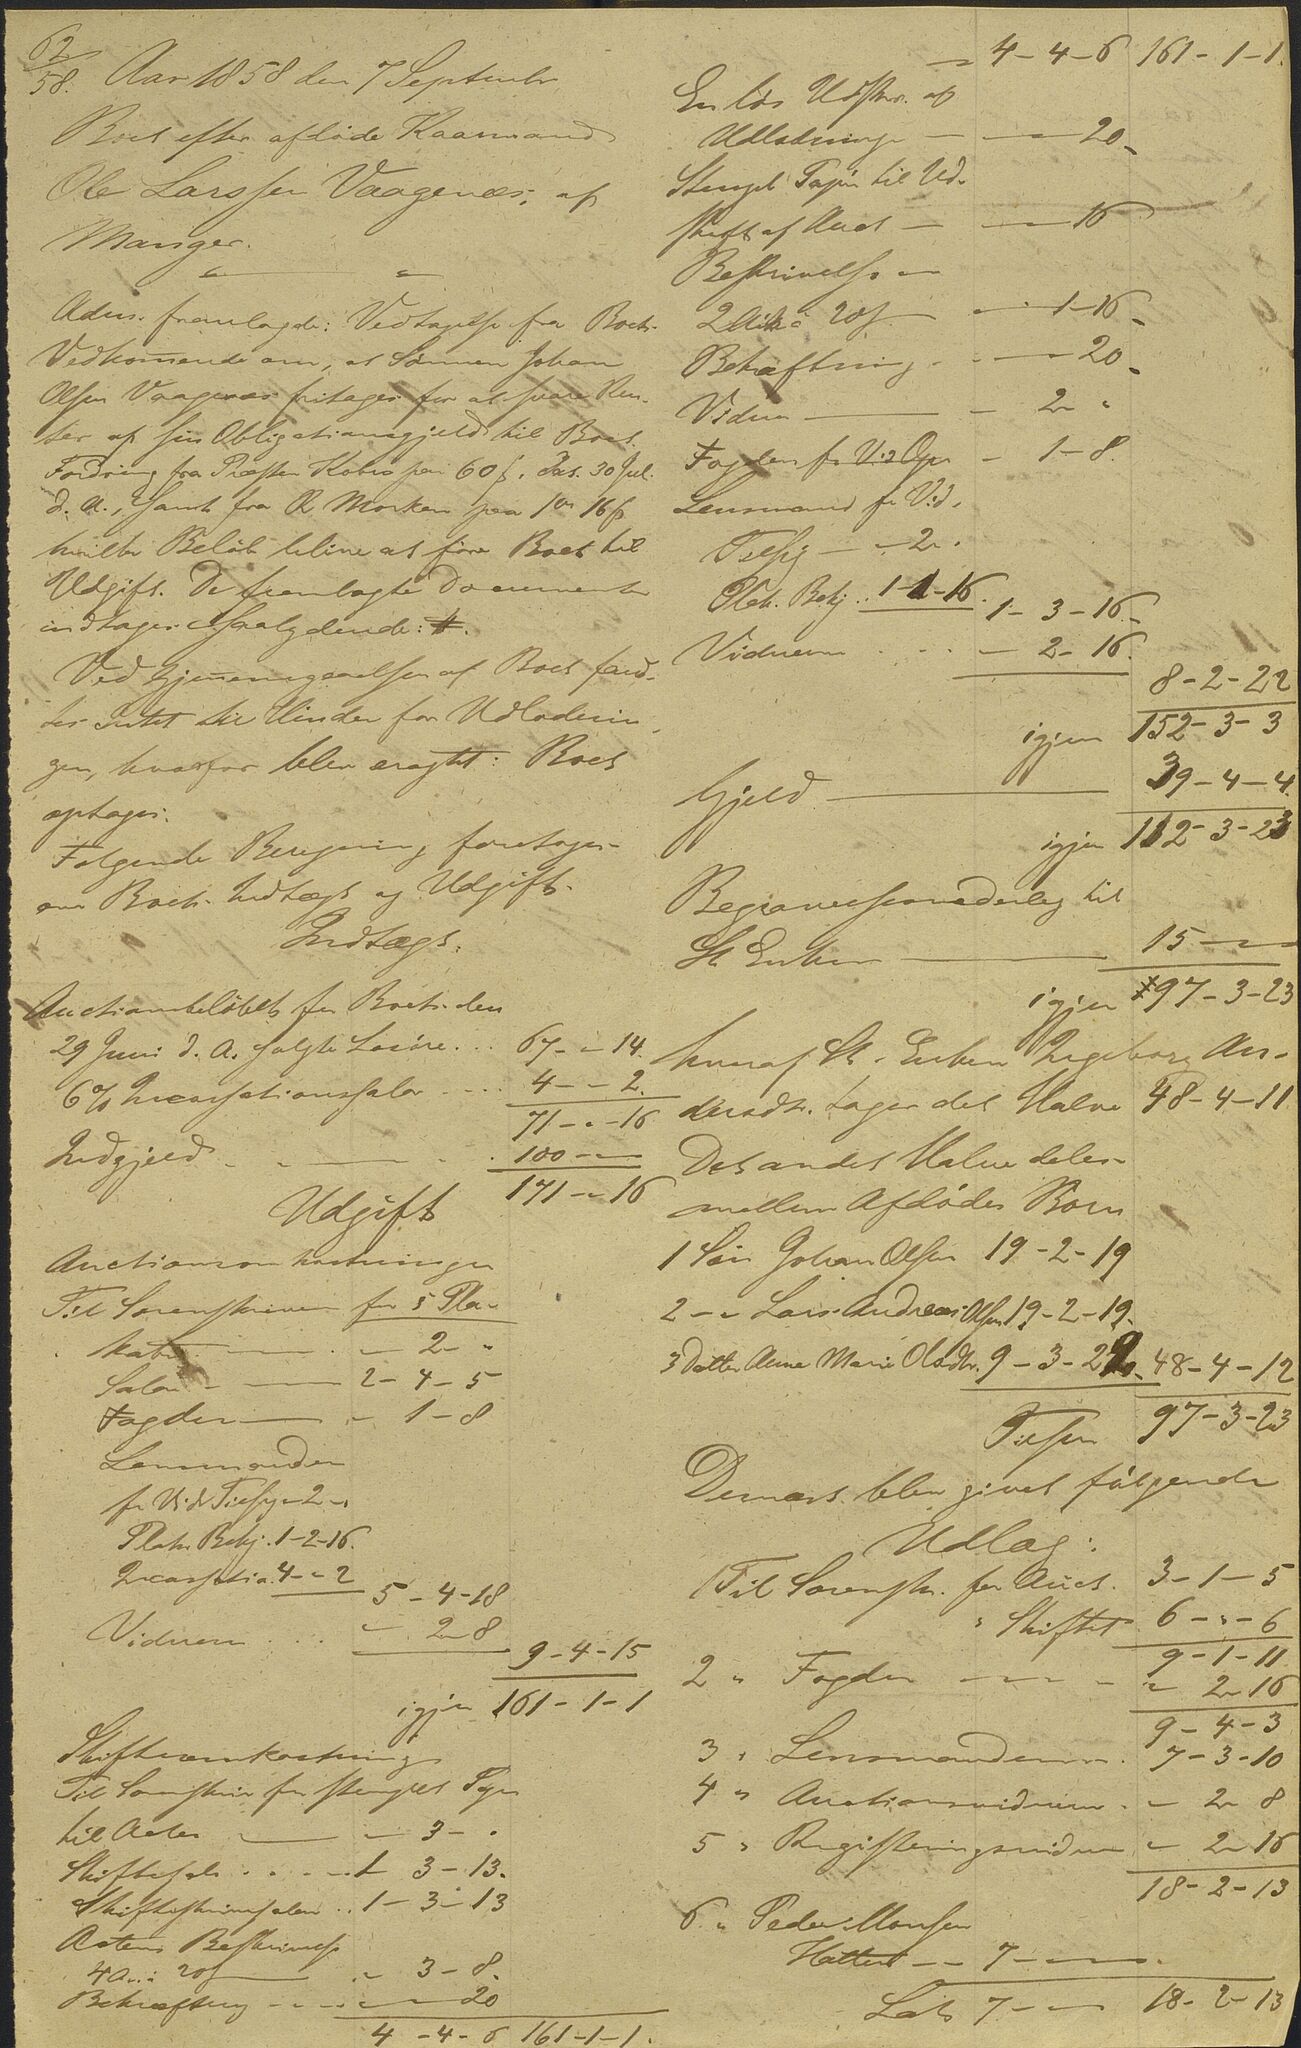 62
58. Aar 1858 den 7 Septembr
Boet efter afdøde Kaarmand
Ole Larssen Vaagenæs, af
Manger.
Adm. fremlagde: Vedtagelse fra Boets
Vedkommende om, at Sønnen Johan
Olsen Vaagenæs fritages for at svare Ren-
ter af sin Obligationsgjeld til Boet.
Fordring fra Præsten Koren paa 60 ß, Pas. 30 Jul.
d. A., samt fra R Morken paa 1 ort 16 ß
hvilke Beløb blive at føre Boet til
Udgift. De fremlagte Documenter
indtages saalydende: #.
Ved Gjennemgaaelsen af Boet fand-
tes Intet til Hinder for Udlodnin-
gen, hvorfor blev eragtet: Boet
optages.
Følgende Beregning foretages
over Boets Indtægt og Udgift.
Indtægt.
Auctionsbeløbet for Boets den
29 Juni d. A. solgte Løsøre... 67 - " - 14.
6% Incassationssalær ... 4 - " - 2
71 - " - 16
Indgjeld - 100 - " -
171 - " - 16
Udgift
Auctionsomkostninger
Til Sorenskriveren for 5 Pla-
kater - " - 2 - "
Salær - 2 - 4 - 5
Fogden - " - 1 - 8
Lensmanden
for Vid. Tilsig. - 2 - "
Plak. Bekj. 1 - 2 - 16.
Incassatio. 4 - " - 2
5 - 4 - 18
Vidnerne ... " - 2 - 8
9 - 4 - 15
igjen 161 - 1 - 1
Skifteomkostninger
Til Sorenskriv for stemplet Papir
til Acten - " - 3 - "
Skiftesalær ... 1 - 3 - 13.
Skifteskriversalær .. 1 - 3 - 13
Actens Beskrivelse
4 Ark à 20 ß - " - 3 - 8.
Bekræftning - " - " - 20
4 - 4 - 6 161 - 1 - 1.
" 4 - 4 - 6 161 - 1 - 1.
En løs Udskr. af
Udlodninge - " - 20
Stempl. Papir til Ud-
skrift af Auct - " - 16
Beskrivelse -
2 Ark à 20 ß - " - 1 - 16
Bekræftning - " - " - 20
Vidn - " - 2 - "
Fogden for Vid. Opn - 1 - 8.
Lensmand for Vid.
Tilsig - " - 2 - "
Plak. Bekj. 1 - 1 - 16.
1 - 3 - 16
Vidnerne . . . " - 2 - 16.
8 - 2 - 22
igjen 152 - 3 - 3
Gjeld - 39 - 4 - 4
igjen 112 - 3 - 23
Begravelsesvederlag til
St. Enken - 15 - " -
igjen 97 - 3 - 23
hvoraf St. Enken Ingeborg An-
dersdtr. tager det Halve 48 - 4 - 11
Det andet Halve deles
mellem Afdødes Børn
1 Søn Johan Olsen 19 - 2 - 19
2 - " Lars Andreas Olsen 19 - 2 - 19
3 Datter Anne Marie Olsdtr. 9 - 3 - 22 48 - 4 - 12
Tilsn 97 - 3 - 23
Dernæst blev givet følgende
Udlæg:
1 Til Sorenskr. for Auct. 3 - 1 - 5
" Skiftet 6 - " - 6
9 - 1 - 11
2 " Fogden - " - 2 - 16
9 - 4 - 3
3 " Lensmanden . 7 - 3 - 10
4 " Auctionsvidnerne . " - 2 - 8
5 " Registeringsvidnerne " - 2 - 16
18 - 2 - 13
6. " Peder Monsen
- 7 - " -
Lat. 7 - " - 18 - 2 - 13